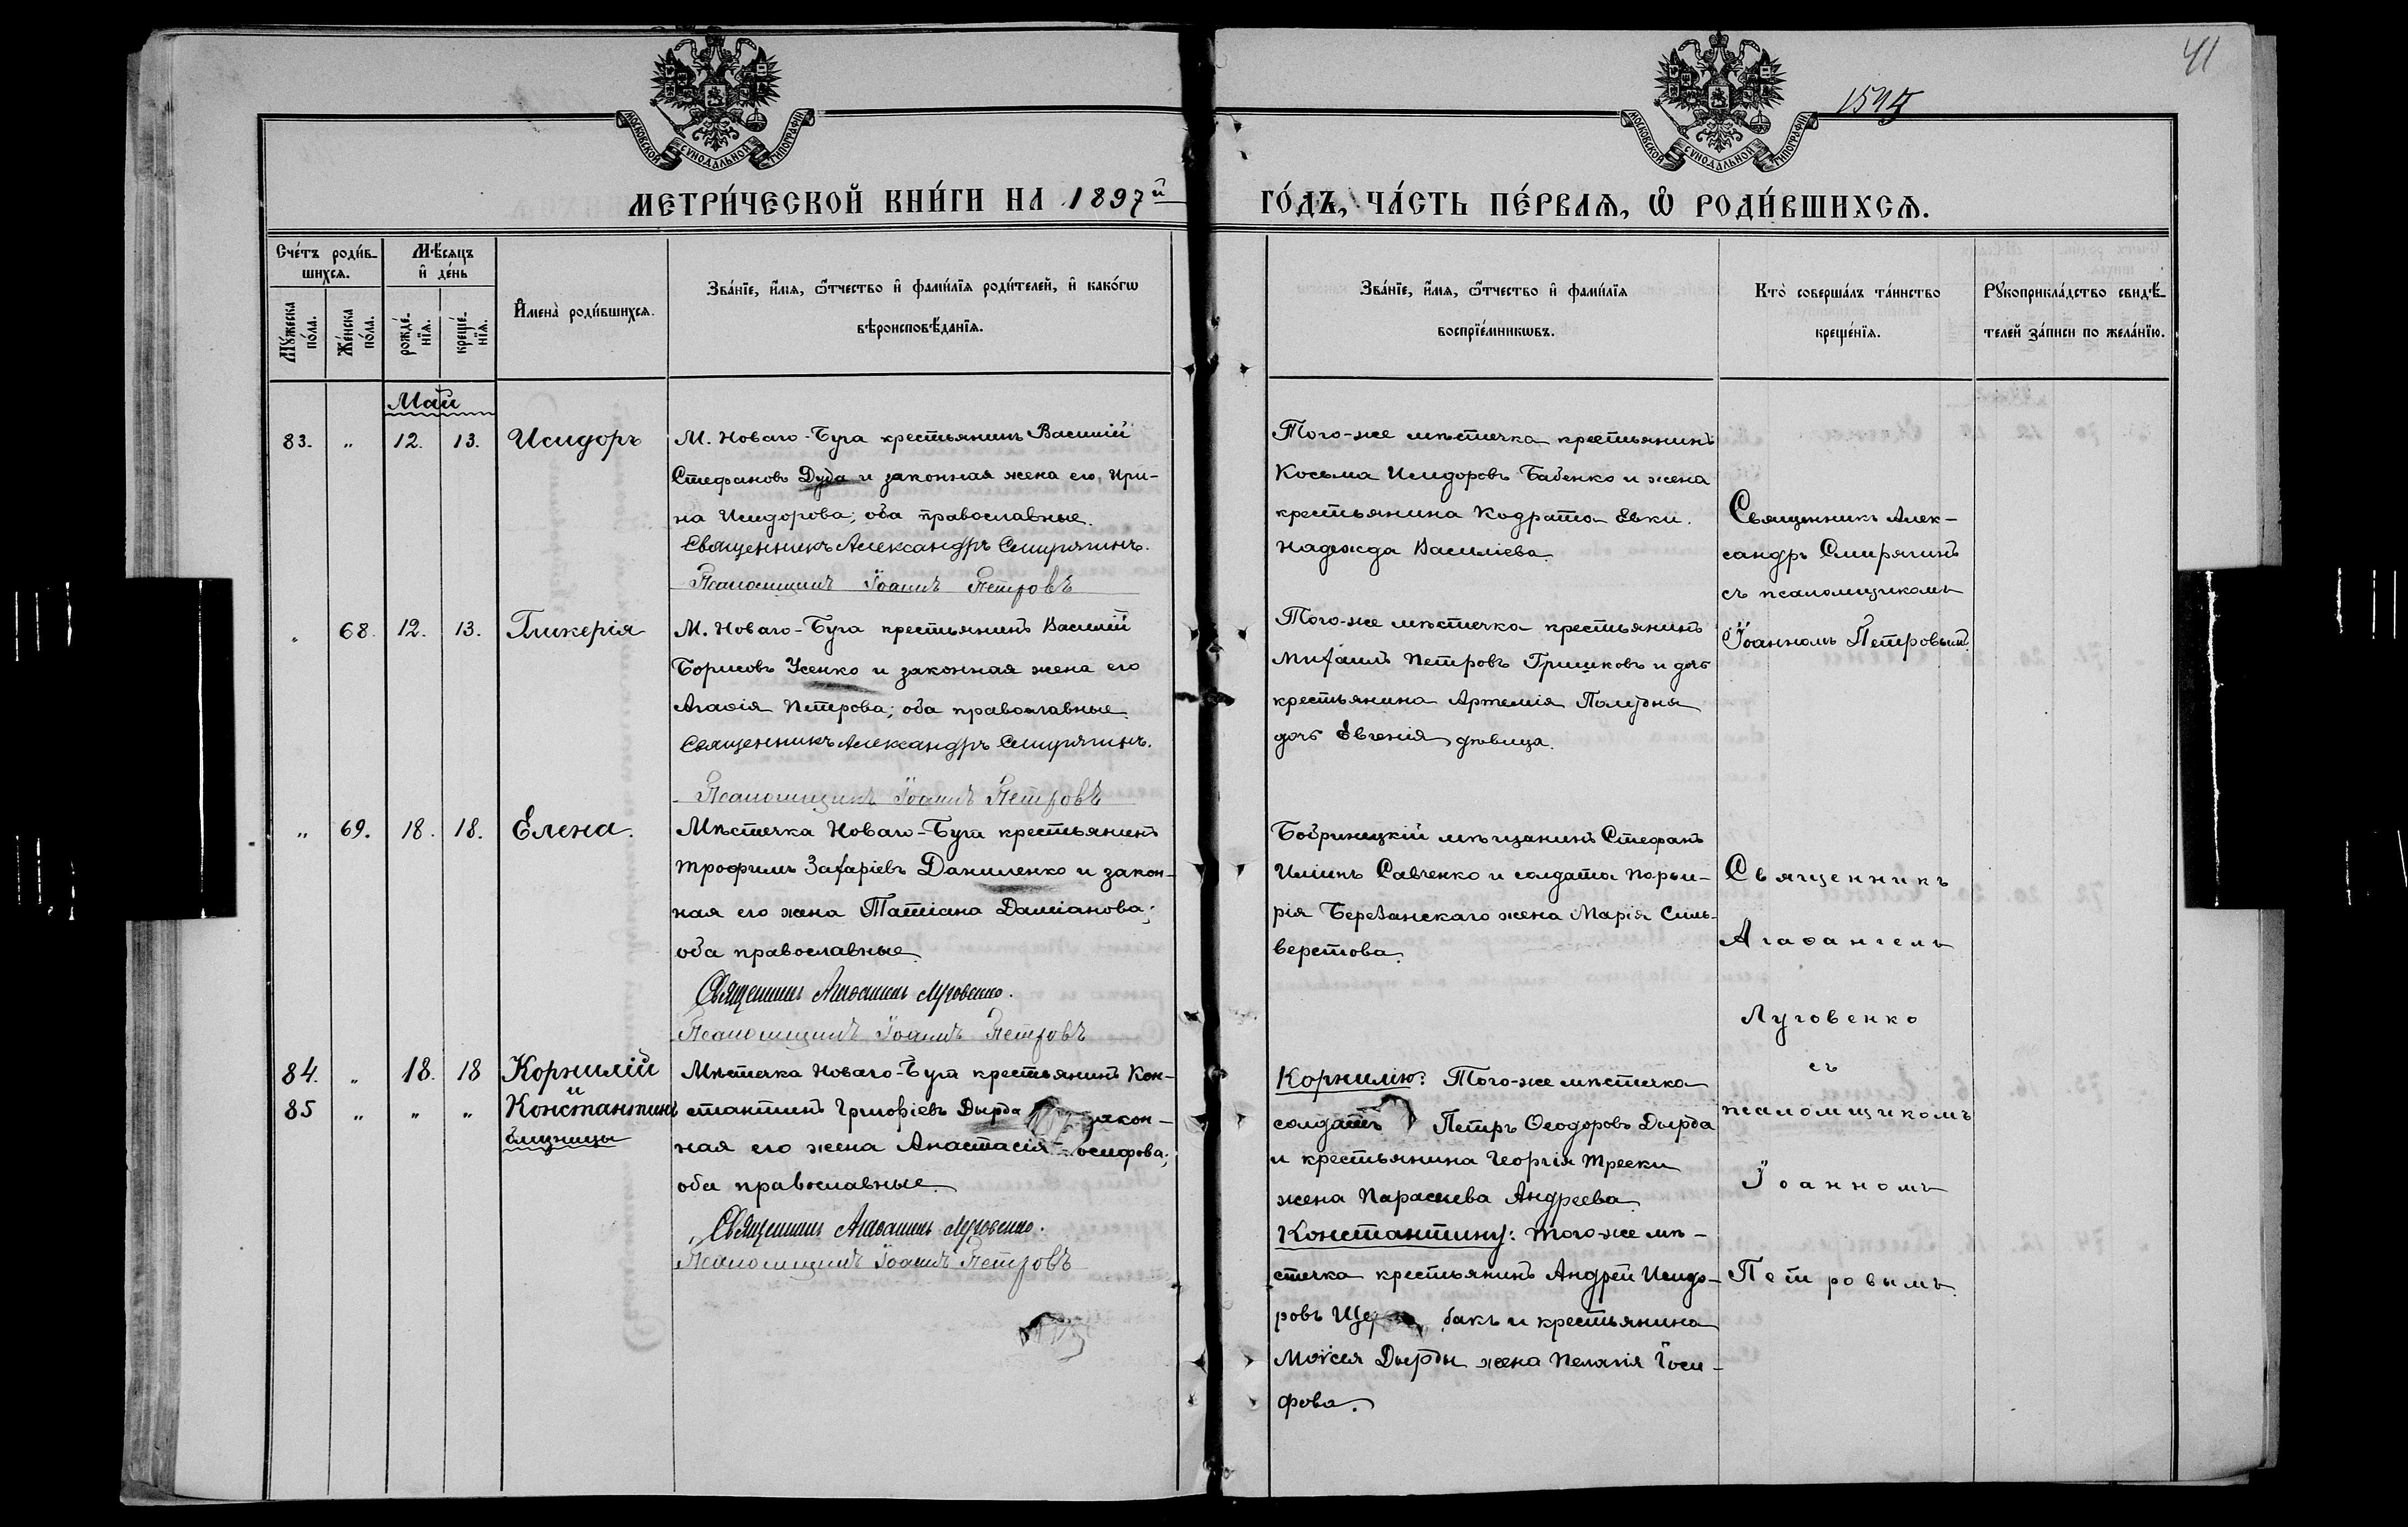 41
1574
МОСКОВСКОЙ СѴНОДАЛЬНОЙ ТИПОГРАФІИ
МОСКОВСКОЙ СѴНОДАЛЬНОЙ ТИПОГРАФІИ
МЕТРИ́ЧЕСКОЙ КНИ́ГИ НА 1897й
ГО́ДЪ, ЧА́СТЬ ПЕ́РВАѦ, Ѡ҆ РОДИ́ВШИХСѦ.
Сче́тъ роди́в-
шихсѧ.
Мꙋ́жеска по́ла.
Же́нска по́ла.
Мѣ́сѧцъ
и҆ де́нь
рожде́-
нїѧ.
креще́-
нїѧ.
И҆мена̀ роди́вшихсѧ.
Зва́нїе, и҆́мѧ, ѻ҆́тчество и҆ фами́лїѧ роди́телей, и҆ како́гѡ
вѣроисповѣ́данїѧ.
Зва́нїе, и҆́мѧ, ѻ҆́тчество и҆ фами́лїѧ
воспрїе́мникѡвъ.
Кто̀ соверша́лъ та́инство
креще́нїѧ.
Рꙋкоприкла́дство свидѣ́-
телей за́писи по жела́нїю.
Май
83. „ 12. 13. Исидоръ
М. Новаго-Буга крестьянинъ Василій
Стефановъ Дуда и законная жена его, Ири-
на Исидорова; оба православные.
Священникъ Александръ Смирягинъ.
Псаломщикъ Іоаннъ Петровъ
Того-же мѣстечка крестьянинъ
Косьма Исидоровъ Бабенко и жена
крестьянина Кодрата Евки.
Надежда Василіева.
Священникъ Алек-
сандръ Смирягинъ
съ псаломщикомъ
Іоанномъ Петровымъ.
„ 68. 12. 13. Гликерія
М. Новаго-Буга крестьянинъ Василій
Борисовъ Усенко и законная жена его
Агаѳія Петрова; оба православные.
Священникъ Александръ Смирягинъ.
Псаломщикъ Іоаннъ Петровъ
Того-же мѣстечка крестьянинъ
Михаилъ Петровъ Гришковъ и дочь
крестьянина Артемія Полудня
дочь Евгенія дѣвица.
„ 69. 18. 18. Елена.
Мѣстечка Новаго-Буга крестьянинъ
Трофимъ Захаріевъ Даниленко и закон-
ная его жена Татіана Даміанова;
оба православные.
Священникъ Агаѳангелъ Луговенко.
Псаломщикъ Іоаннъ Петровъ
Бобринецкій мѣщанинъ Стефанъ
Иліинъ Савченко и солдата Порфи-
рія Березанскаго жена Марія Силь-
верстова.
Священникъ
Агаѳангелъ
Луговенко
съ
псаломщикомъ
Іоанномъ
Петровымъ.
84. „ 18. 18 Корнилій
и
85 „ „ „ Константинъ
близнецы
Мѣстечка Новаго-Буга крестьянинъ Кон-
стантинъ Григоріевъ Дырда закон-
ная его жена Анастасія осифова;
оба православные.
Священникъ Агаѳангелъ Луговенко.
Псаломщикъ Іоаннъ Петровъ
Корнилію: Того-же мѣстечка
солдатъ Петръ Ѳеодоровъ Дырда
и крестьянина Георгія Трески
жена Параскева Андреева.
Константину: Того-же мѣ-
стечка крестьянинъ Андрей Исидо-
ровъ Щер бакъ и крестьянина
Моѵсея Дырды жена Пелагія Іоси-
фова.